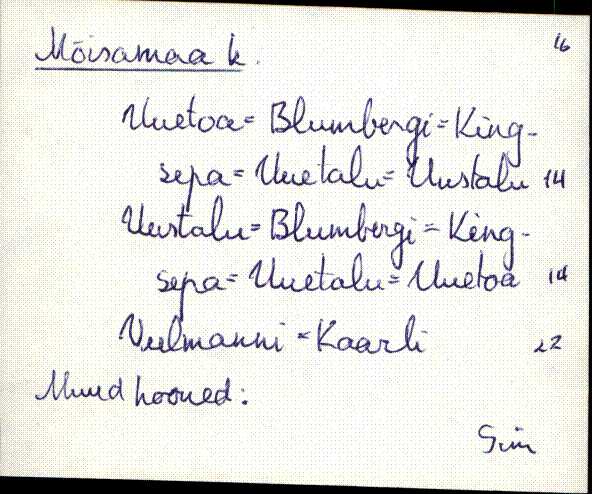 Mõisamaa k. 16
Uuetoa = Blumbergi = King-
sepa = Uuetalu = Uustalu 14
Uustalu = Blumbergi = King-
sepa = Uuetalu = Uuetoa 14
Veelmanni = Kaarli 22
Muud hooned: